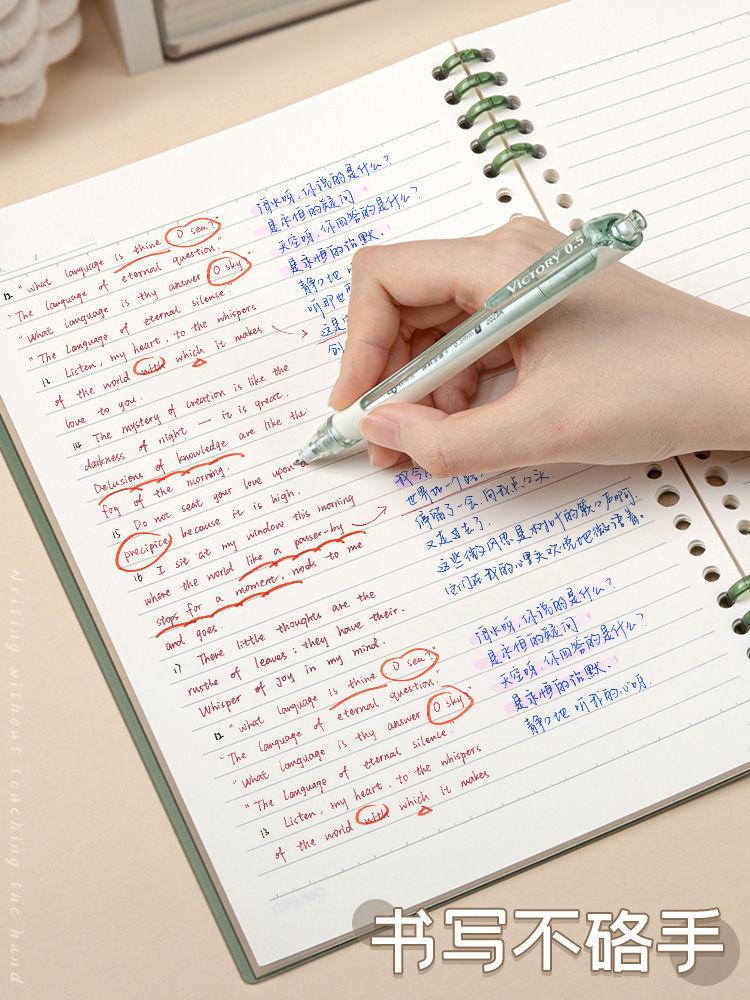 12 "What language is thine O sea?"
"The language of eternal question."
"What language is thy answer O sky
"The Language of eternal silence.
13 Listen, my heart, to the whispers
of the world with which it makes
love to you.
14 The mystery of creation is like the
darkness of night — it is great.
Delusions of knowledge are like the
fog of the morning.
15 Do not seat your love upon a
precipice because it is high.
16 I sit at my window this morning
where the world like a passer-by
stops for a moment, nods to me
and goes.
17 There little thoughts are the
rustle of leaves; they have their
Whisper of joy in my mind.
12 "What language is thine O sea?"
"The language of eternal question."
"What language is thy answer O sky
"The Language of eternal silence.
13 Listen, my heart, to the whispers
of the world with which it makes
海水呀,你说的是什么?
是永恒的疑问
天空呀,你回答的是什么?
是永恒的沉默.
静
听那世
这是
创
我今
世界如一个
停留了一会,向我点点头
又走过去了.
这些微风思是树叶的簌簌声啊
它们在我的心里头欢悦地微语着.
海水呀,你说的是什么?
是永恒的疑问
天空呀,你回答的是什么?
是永恒的沉默.
静静地 听 我的心呀.
VICTORY 0.5
Writing without touching the hand
书写不硌手